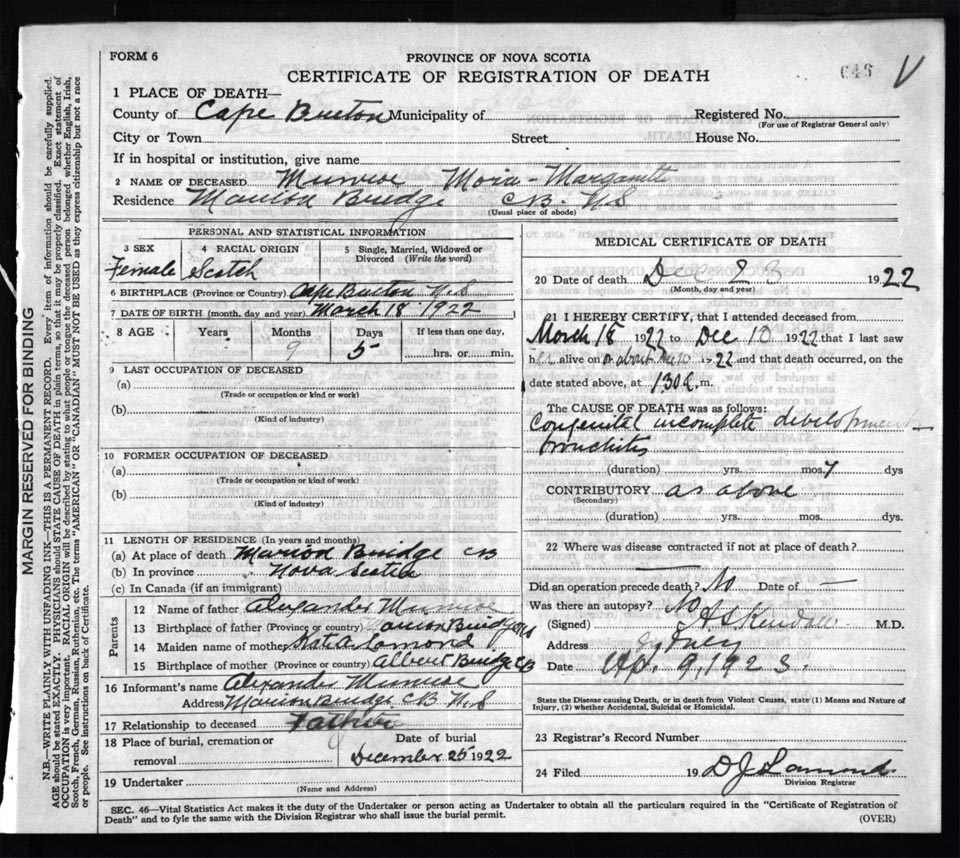 FORM 6
PROVINCE OF NOVA SCOTIA
CERTIFICATE OF REGISTRATION OF DEATH
645 V
1 PLACE OF DEATH—
County of Cape Breton Municipality of Registered No.
(For use of Registrar General only)
City or Town Street House No.
If in hospital or institution, give name
2 NAME OF DECEASED Munroe Moia - Margarite
Residence Marion Bridge CB. N.S
(Usual place of abode)
PERSONAL AND STATISTICAL INFORMATION
3 SEX 4 RACIAL ORIGIN 5 Single, Married, Widowed or Divorced (Write the word)
Female Scotch
6 BIRTHPLACE (Province or Country) Cape Breton N.S
7 DATE OF BIRTH (month, day and year) March 18 1922
8 AGE Years Months Days If less than one day,
9 5 hrs. or min.
9 LAST OCCUPATION OF DECEASED
(a)
(Trade or occupation or kind or work)
(b)
(Kind of industry)
10 FORMER OCCUPATION OF DECEASED
(a)
(Trade or occupation or kind of work)
(b)
(Kind of industry)
11 LENGTH OF RESIDENCE (In years and months)
(a) At place of death Marion Bridge CB
(b) In province Nova Scotia
(c) In Canada (if an immigrant)
Parents
12 Name of father Alexander Munroe
13 Birthplace of father (Province or country) Marion Bridge NS
14 Maiden name of mother Katie Lamond
15 Birthplace of mother (Province or country) Albert Bridge CB
16 Informant's name Alexander Munroe
Address Marion Bridge CB N.S
17 Relationship to deceased Father
18 Place of burial, cremation or removal Date of burial
December 25 1922
19 Undertaker
(Name and Address)
MEDICAL CERTIFICATE OF DEATH
20 Date of death Dec 23 1922
(Month, day and year)
21 I HEREBY CERTIFY, that I attended deceased from
March 18 1922 to Dec 10 1922 that I last saw
her alive on or about 1922 and that death occurred, on the
date stated above, at 130 m.
The CAUSE OF DEATH was as follows:
Congenital incomplete development
bronchitis
(duration) yrs. mos. 7 dys
CONTRIBUTORY as above
(Secondary)
(duration) yrs. mos. dys.
22 Where was disease contracted if not at place of death?
—
Did an operation precede death? No Date of —
Was there an autopsy? No
(Signed) A S Kendall M.D.
Address Sydney
Date Ap. 9, 1923.
State the Disease causing Death, or in death from Violent Causes, state (1) Means and Nature of
Injury, (2) whether Accidental, Suicidal or Homicidal.
23 Registrar's Record Number
24 Filed 19 D J Lamond
Division Registrar
SEC. 46—Vital Statistics Act makes it the duty of the Undertaker or person acting as Undertaker to obtain all the particulars required in the "Certificate of Registration of
Death" and to fyle the same with the Division Registrar who shall issue the burial permit.
(OVER)
MARGIN RESERVED FOR BINDING
N.B.—WRITE PLAINLY WITH UNFADING INK—THIS IS A PERMANENT RECORD. Every item of information should be carefully supplied.
AGE should be stated EXACTLY. PHYSICIANS should STATE CAUSE OF DEATH in plain terms, so that it may be properly classified. Exact statement of
OCCUPATION is very important. RACIAL ORIGIN will be described by stating to what people or tongue the deceased person belonged whether English, Irish,
Scotch, French, German, Russian, Ruthenian, etc. The terms "AMERICAN" OR "CANADIAN" MUST NOT BE USED as they express citizenship but not a race
or people. See instructions on back of Certificate.